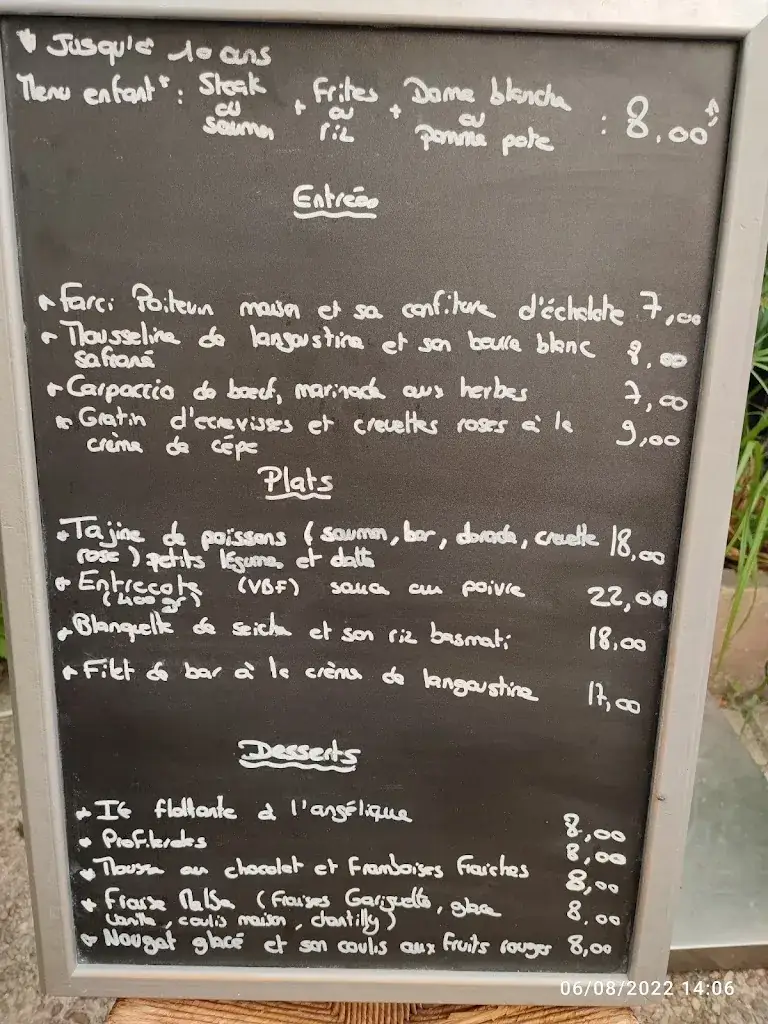 * Jusqu'à 10 ans
Menu enfant* : Steak ou saumon + Frites ou riz + Dame blanche ou pomme pote : 8,00
Entrées
* Farci Poitevin maison et sa confiture d'échalote 7,00
* Mousseline de langoustine et son beurre blanc 8,00
safrané
* Carpaccio de bœuf, marinade aux herbes 7,00
* Gratin d'écrevisses et crevettes roses à la 9,00
crème de cèpe
Plats
* Tajine de poissons (saumon, bar, dorade, crevette 18,00
rose) petits légume et datte
* Entrecote (VBF) sauce au poivre 22,00
(400 gr)
* Blanquette de seiche et son riz basmati 18,00
* Filet de bar à la crème de langoustine 17,00
Desserts
* Ile flottante à l'angélique 8,00
* Profiteroles 8,00
* Mousse au chocolat et Framboises Fraiches 8,00
* Fraise Melba (Fraises Gariguette, glace 8,00
vanille, coulis maison, chantilly)
* Nougat glacé et son coulis aux fruits rouges 8,00
06/08/2022 14:06